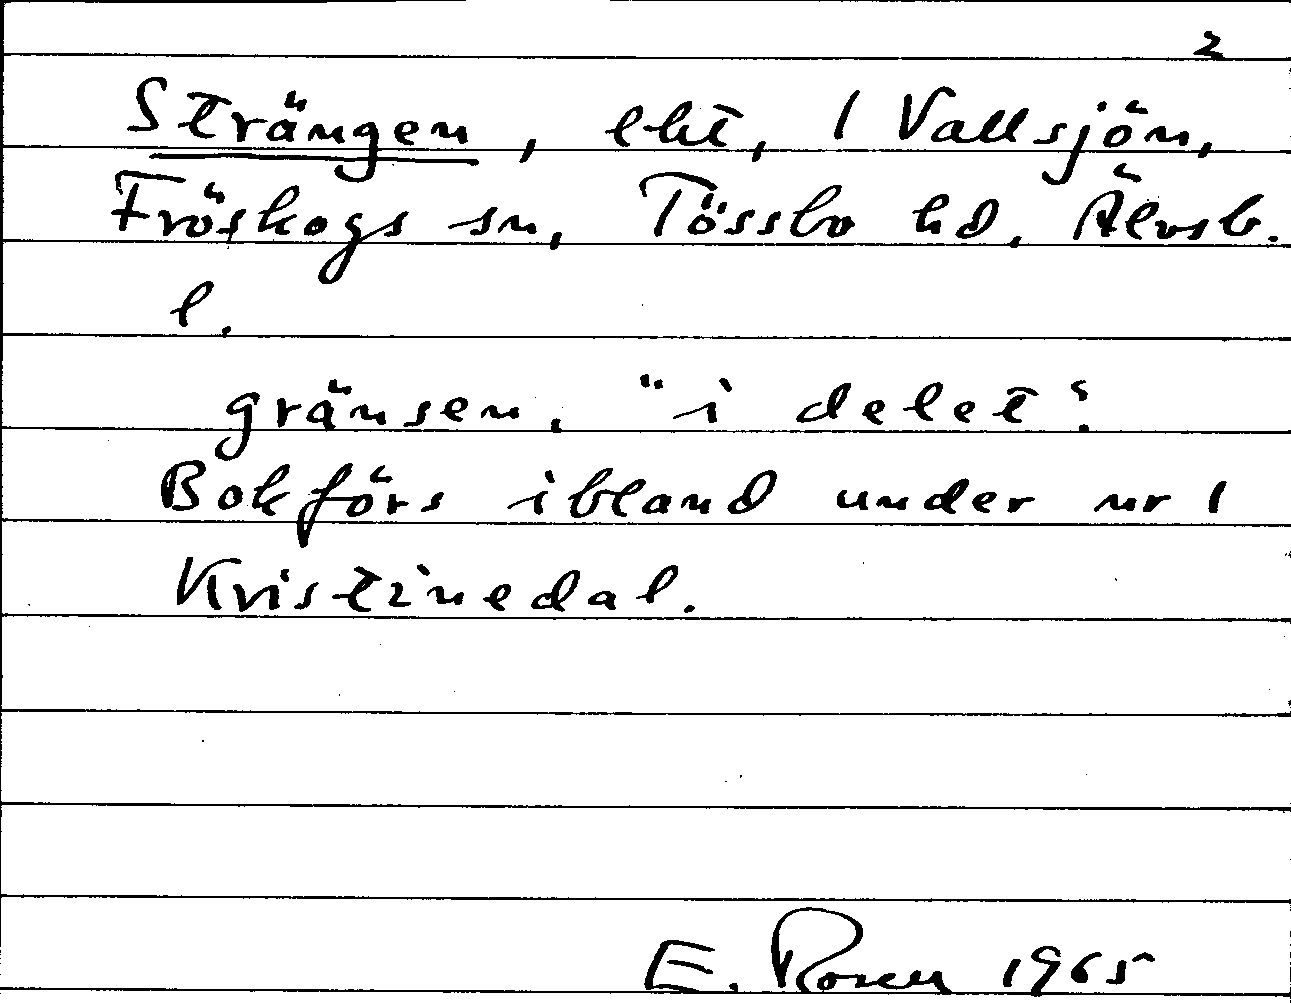 2
Strängen, lht, 1 Vallsjön,
Fröskogs sn, Tössbo hd, Älvsb.
l.
gränsen, "i delet".
Bokförs ibland under nr 1
Kristinedal.
E. Rosen 1965